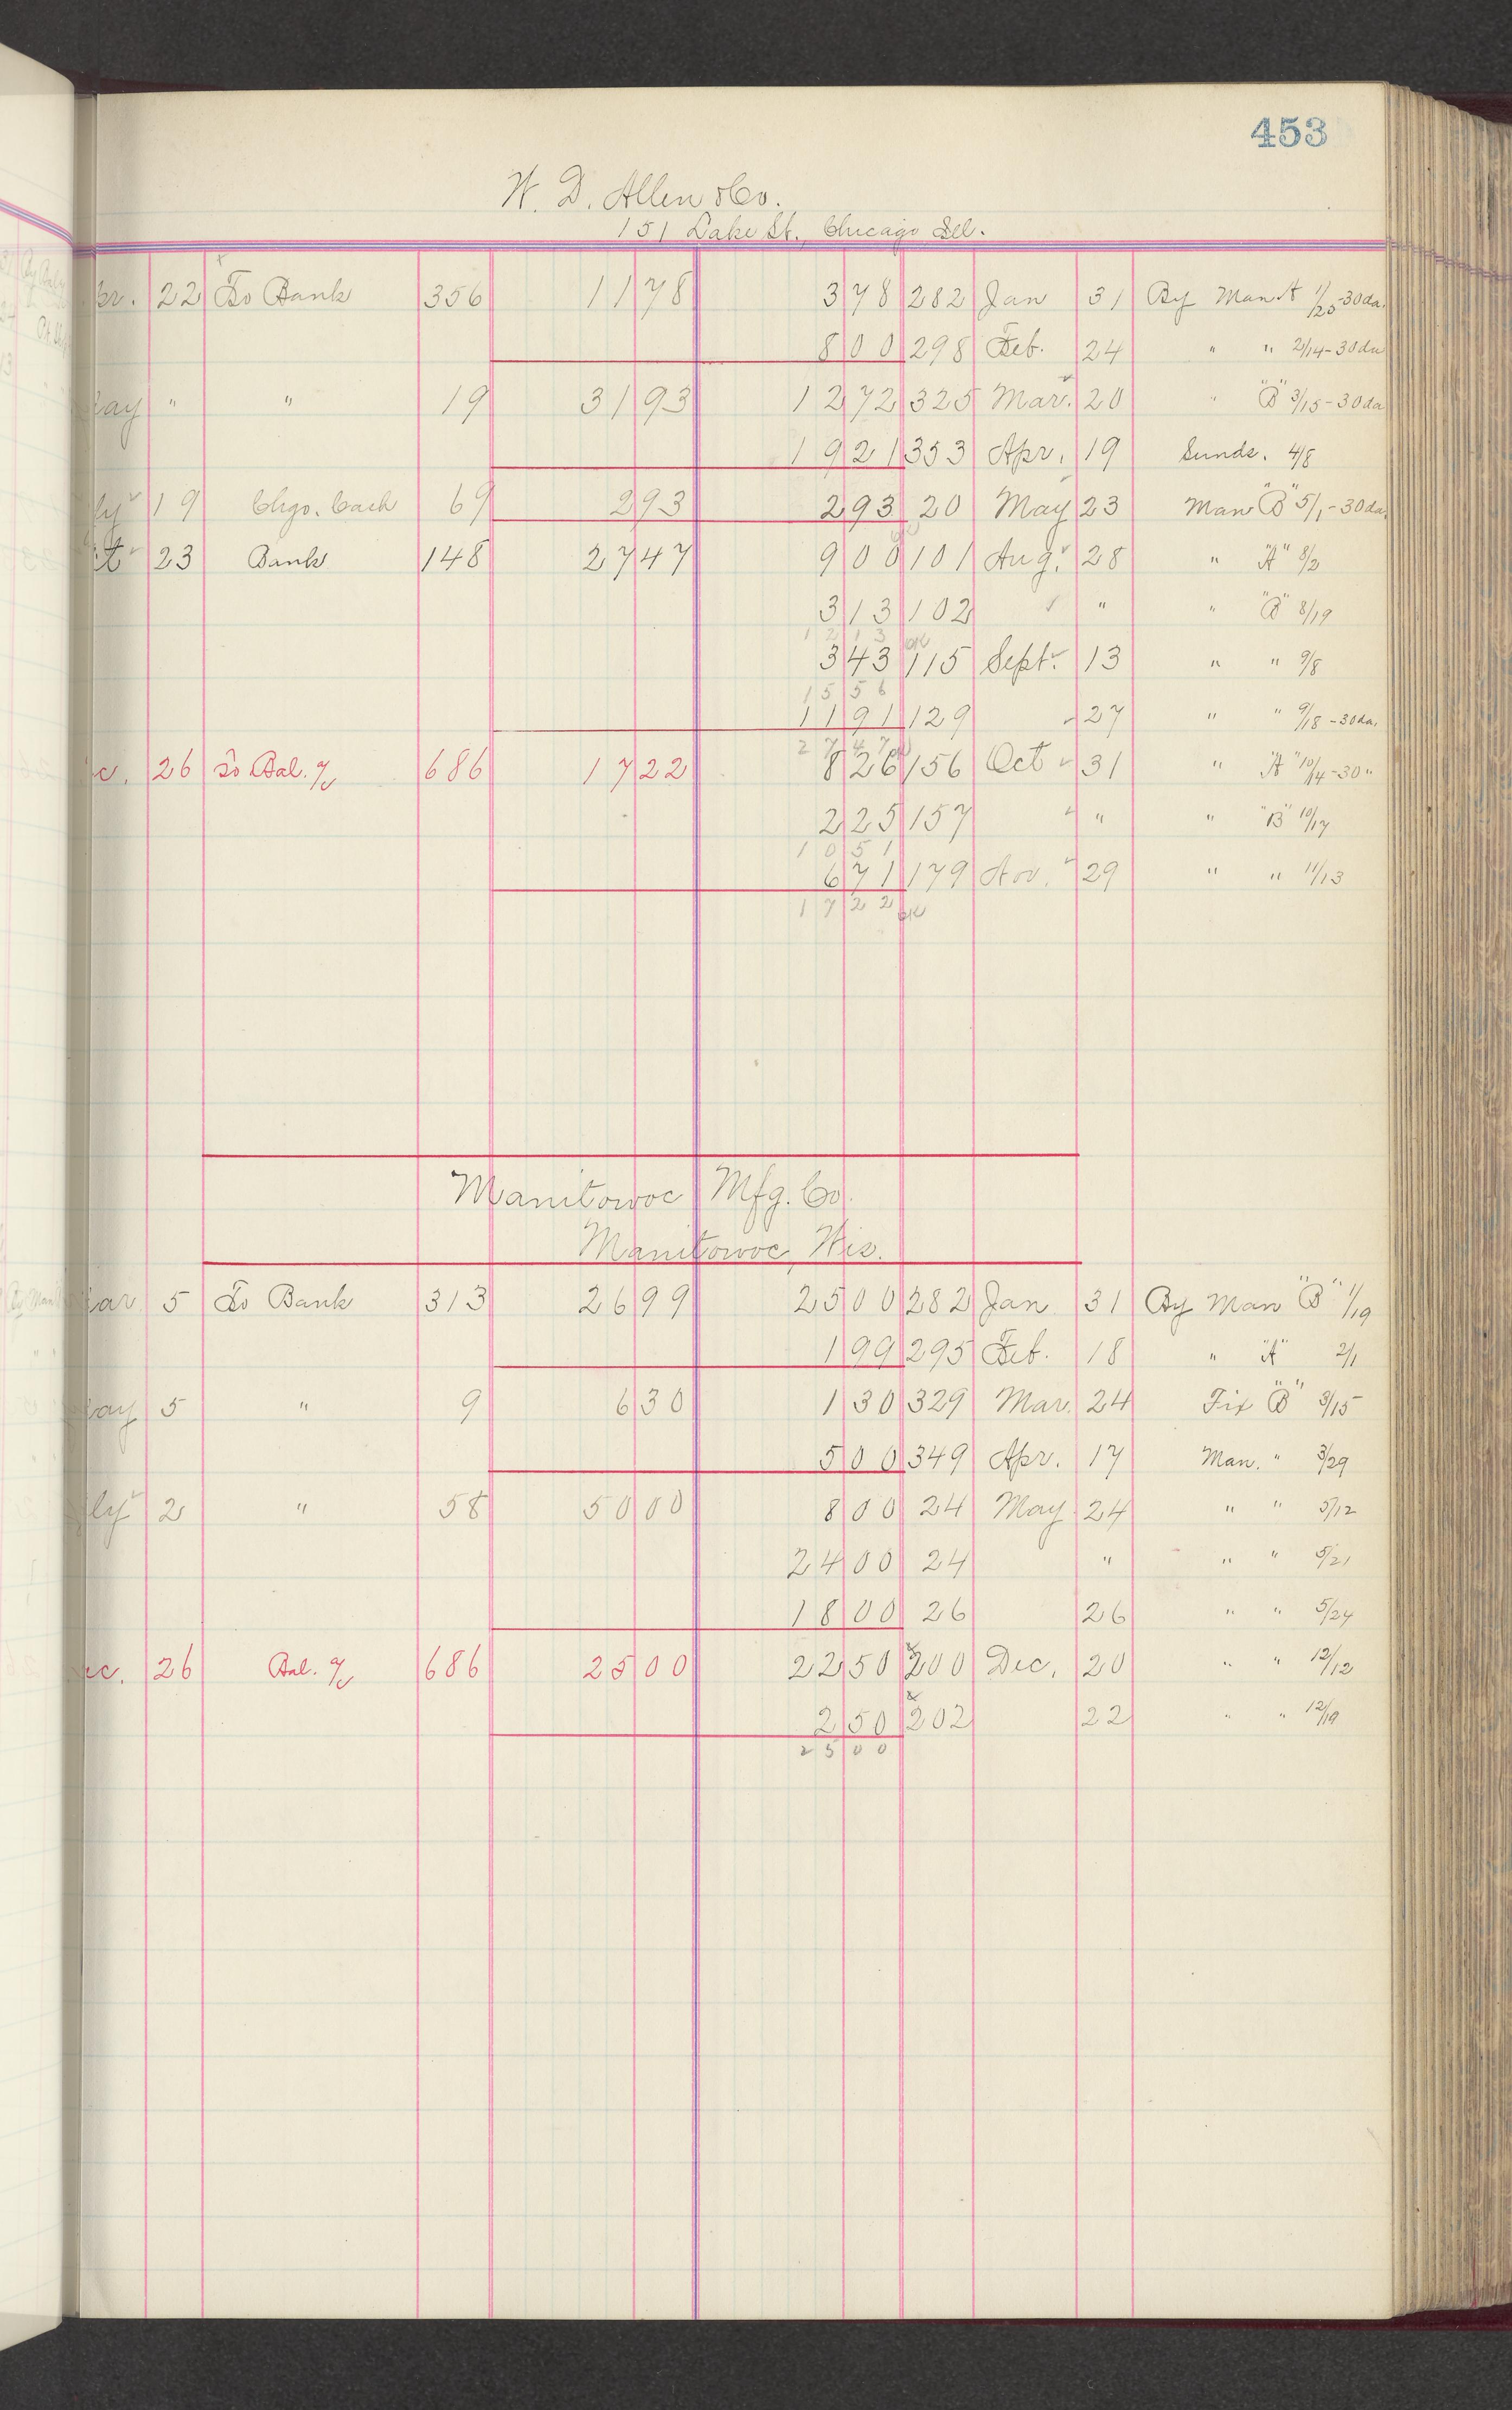 453
W. D. Allen & Co.
151 Lake St., Chicago Ill.
pr. 22 To Bank 356 11 78 3 78 282 Jan 31 By Man A 1/25-30da.
8 00 298 Feb. 24 " " 2/14-30da
ay " " 19 31 93 12 72 325 Mar. 20 " "B" 3/15-30da
19 21 353 Apr. 19 Sunds. 4/8
ly 19 Chgo. Cash 69 2 93 2 93 20 May 23 Man "B" 5/1-30da.
t 23 Bank 148 27 47 9 00 101 Aug. 28 " "A" 8/2
3 13 102 " " "B" 8/19
12 13 OK
3 43 115 Sept. 13 " " 9/8
15 56
11 91 129 27 " " 9/18-30da.
27 47 OK
c. 26 To Bal. 686 17 22 8 26 156 Oct 31 " "A" 10/14-30"
2 25 157 " " "B" 10/17
10 51
6 71 179 Nov. 29 " " 11/13
17 22 OK
Manitowoc Mfg. Co.
Manitowoc, Wis.
ar 5 To Bank 313 26 99 25 00 282 Jan 31 By Man "B" 1/19
1 99 295 Feb. 18 " "A" 2/1
ay 5 " 9 6 30 1 30 329 Mar. 24 Fix "B" 3/15
5 00 349 Apr. 17 Man. " 3/29
ly 2 " 58 50 00 8 00 24 May 24 " " 5/12
24 00 24 " " " 5/21
18 00 26 26 " " 5/24
ec. 26 Bal. 686 25 00 22 50 200 Dec. 20 " " 12/12
2 50 202 22 " " 12/19
25 00